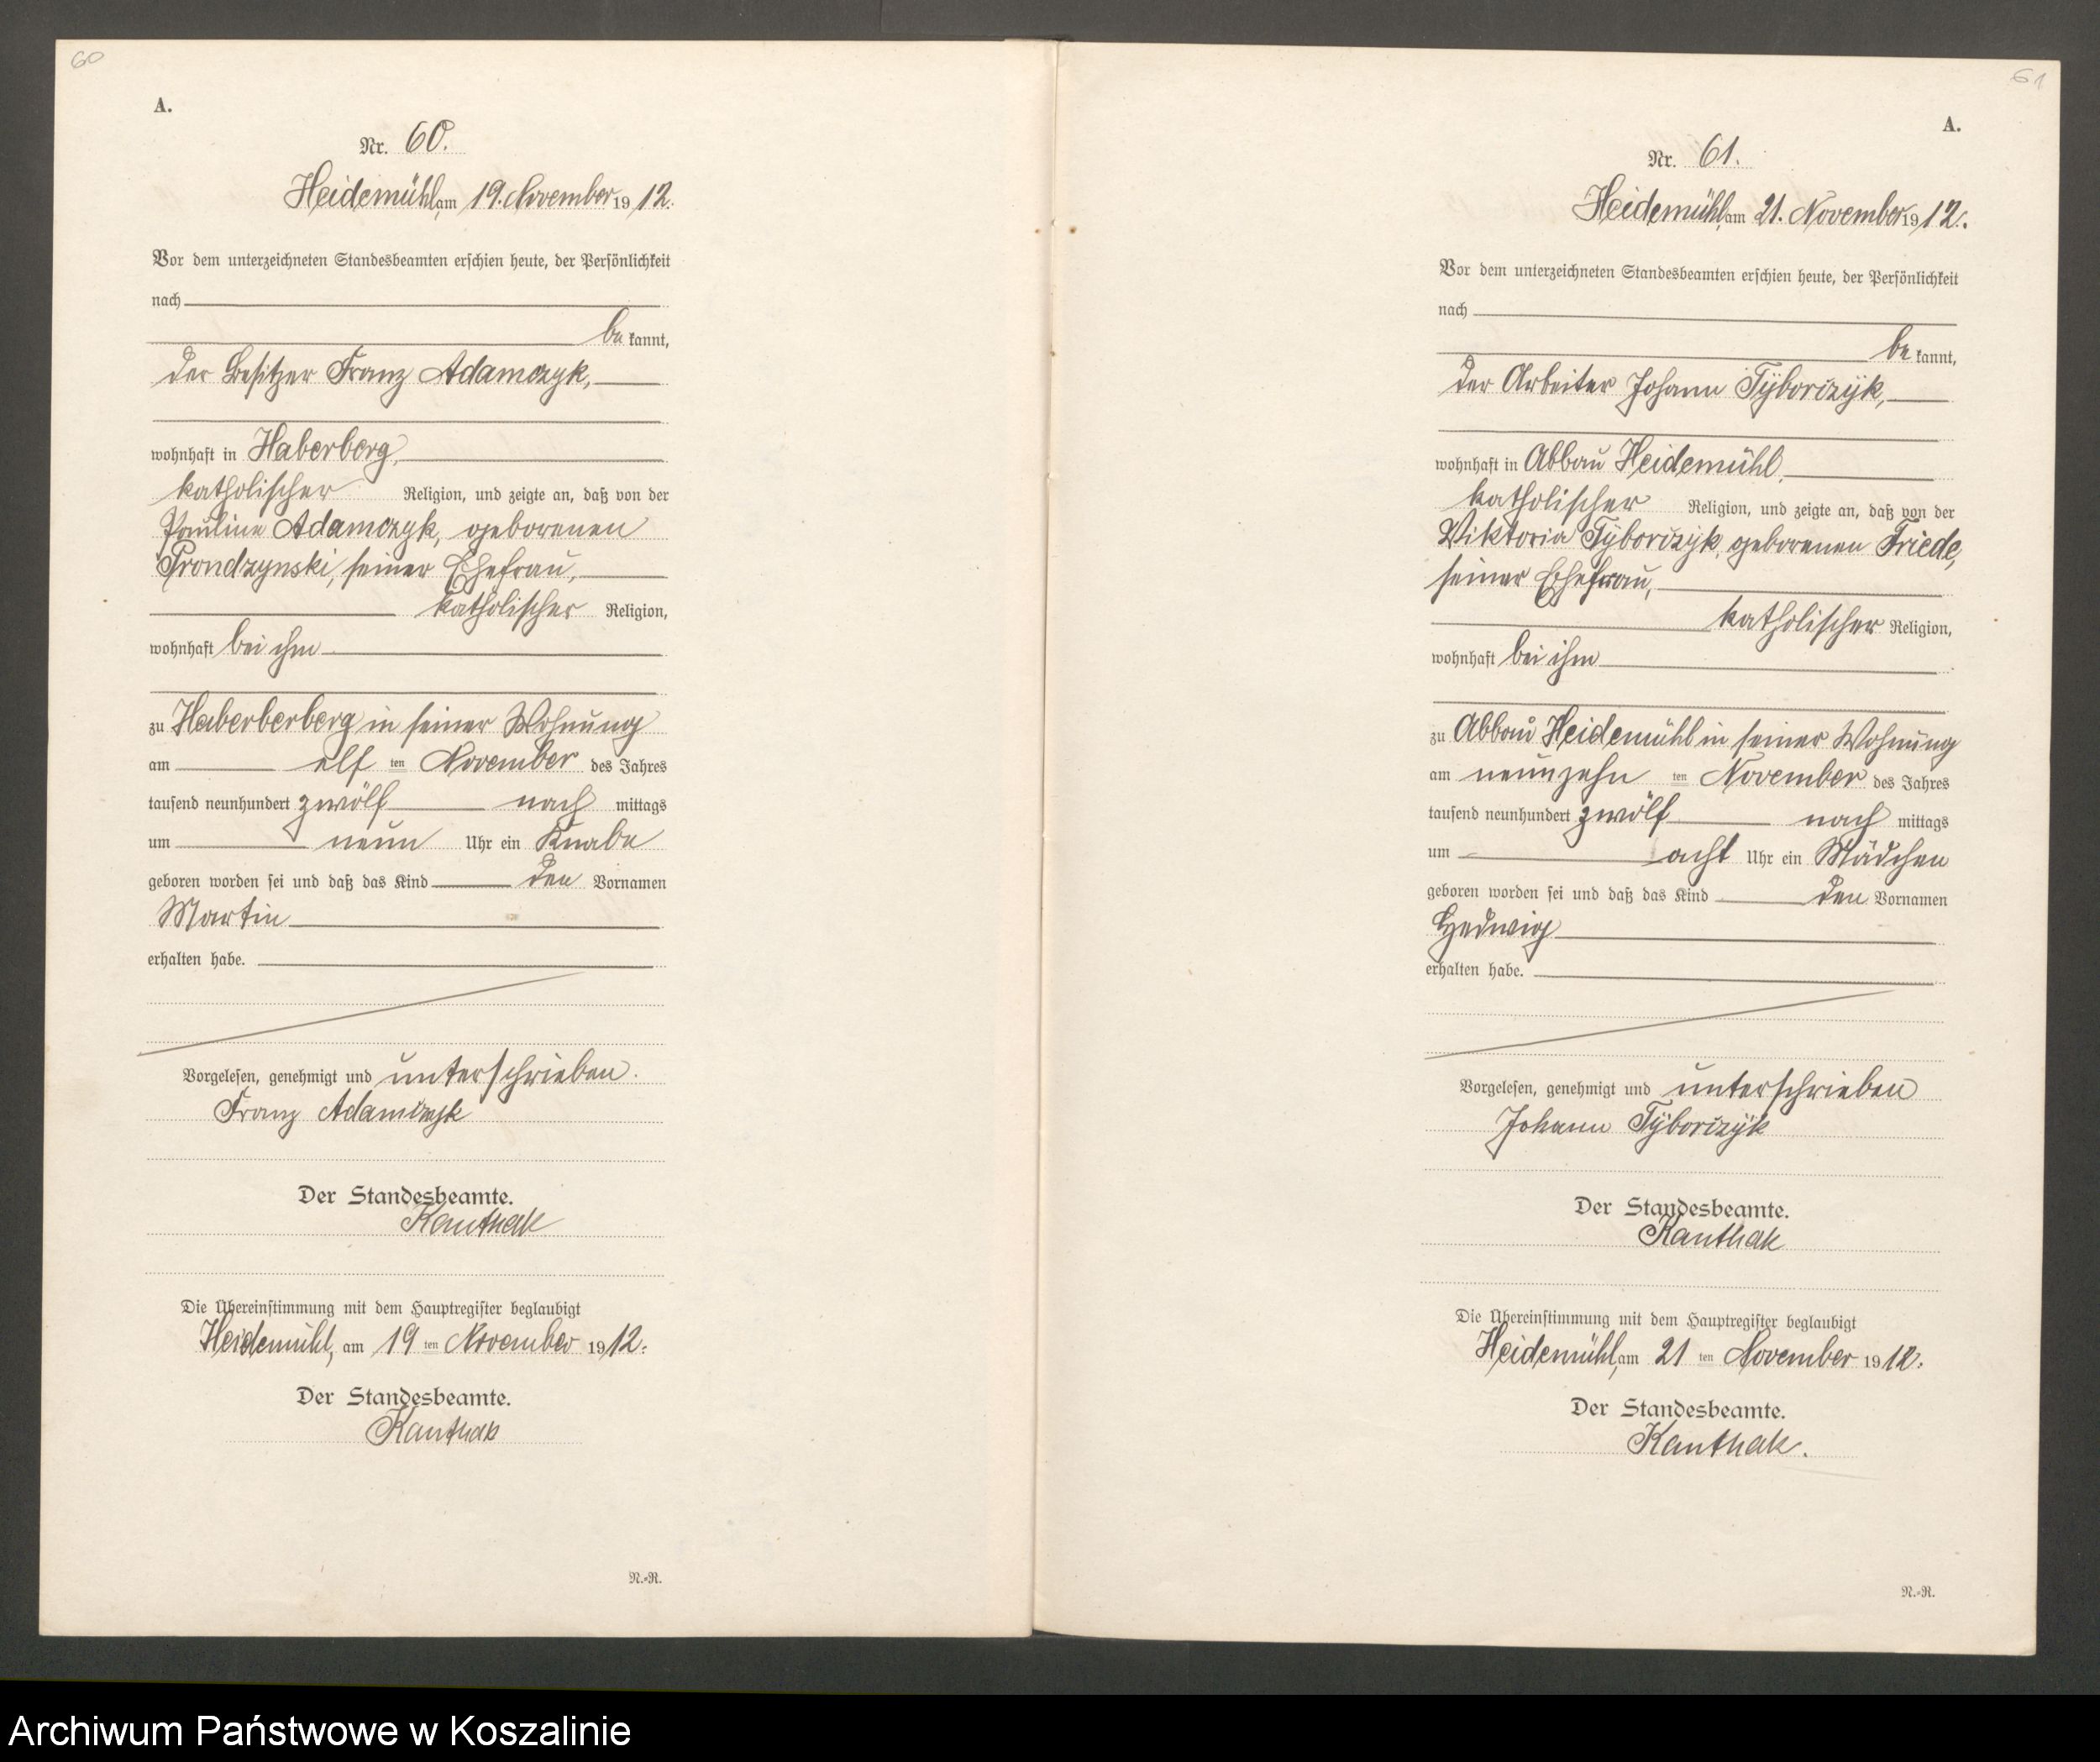 60
A.
Nr. 60.
Heidemühl, am 19. November 1912.
Vor dem unterzeichneten Standesbeamten erschien heute, der Persönlichkeit
nach
be kannt,
der Besitzer Franz Adamczyk,
wohnhaft in Haberberg,
katholischer Religion, und zeigte an, daß von der
Pauline Adamczyk, geborenen
Prondzynski, seiner Ehefrau,
katholischer Religion,
wohnhaft bei ihm
zu Haberberberg in seiner Wohnung
am elf ten November des Jahres
tausend neunhundert zwölf nach mittags
um neun Uhr ein Knabe
geboren worden sei und daß das Kind den Vornamen
Martin
erhalten habe.
Vorgelesen, genehmigt und unterschrieben.
Franz Adamczyk
Der Standesbeamte.
Kanthak
Die Übereinstimmung mit dem Hauptregister beglaubigt
Heidemühl, am 19 ten November 1912.
Der Standesbeamte.
Kanthak
N.-R.
61
A.
Nr. 61.
Heidemühl, am 21. November 1912.
Vor dem unterzeichneten Standesbeamten erschien heute, der Persönlichkeit
nach
be kannt,
der Arbeiter Johann Tÿborczÿk,
wohnhaft in Abbau Heidemühl,
katholischer Religion, und zeigte an, daß von der
Viktoria Tÿborczÿk, geborenen Friede,
seiner Ehefrau,
katholischer Religion,
wohnhaft bei ihm
zu Abbau Heidemühl in seiner Wohnung
am neunzehn ten November des Jahres
tausend neunhundert zwölf nach mittags
um acht Uhr ein Mädchen
geboren worden sei und daß das Kind den Vornamen
Hedwig
erhalten habe.
Vorgelesen, genehmigt und unterschrieben
Johann Tÿborczÿk
Der Standesbeamte.
Kanthak
Die Übereinstimmung mit dem Hauptregister beglaubigt
Heidemühl, am 21 ten November 1912.
Der Standesbeamte.
Kanthak.
N.-R.
Archiwum Państwowe w Koszalinie